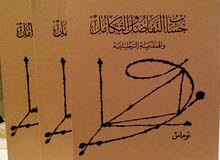 حساب التفاضل والتكامل
والهندسة التحليلية
توماس